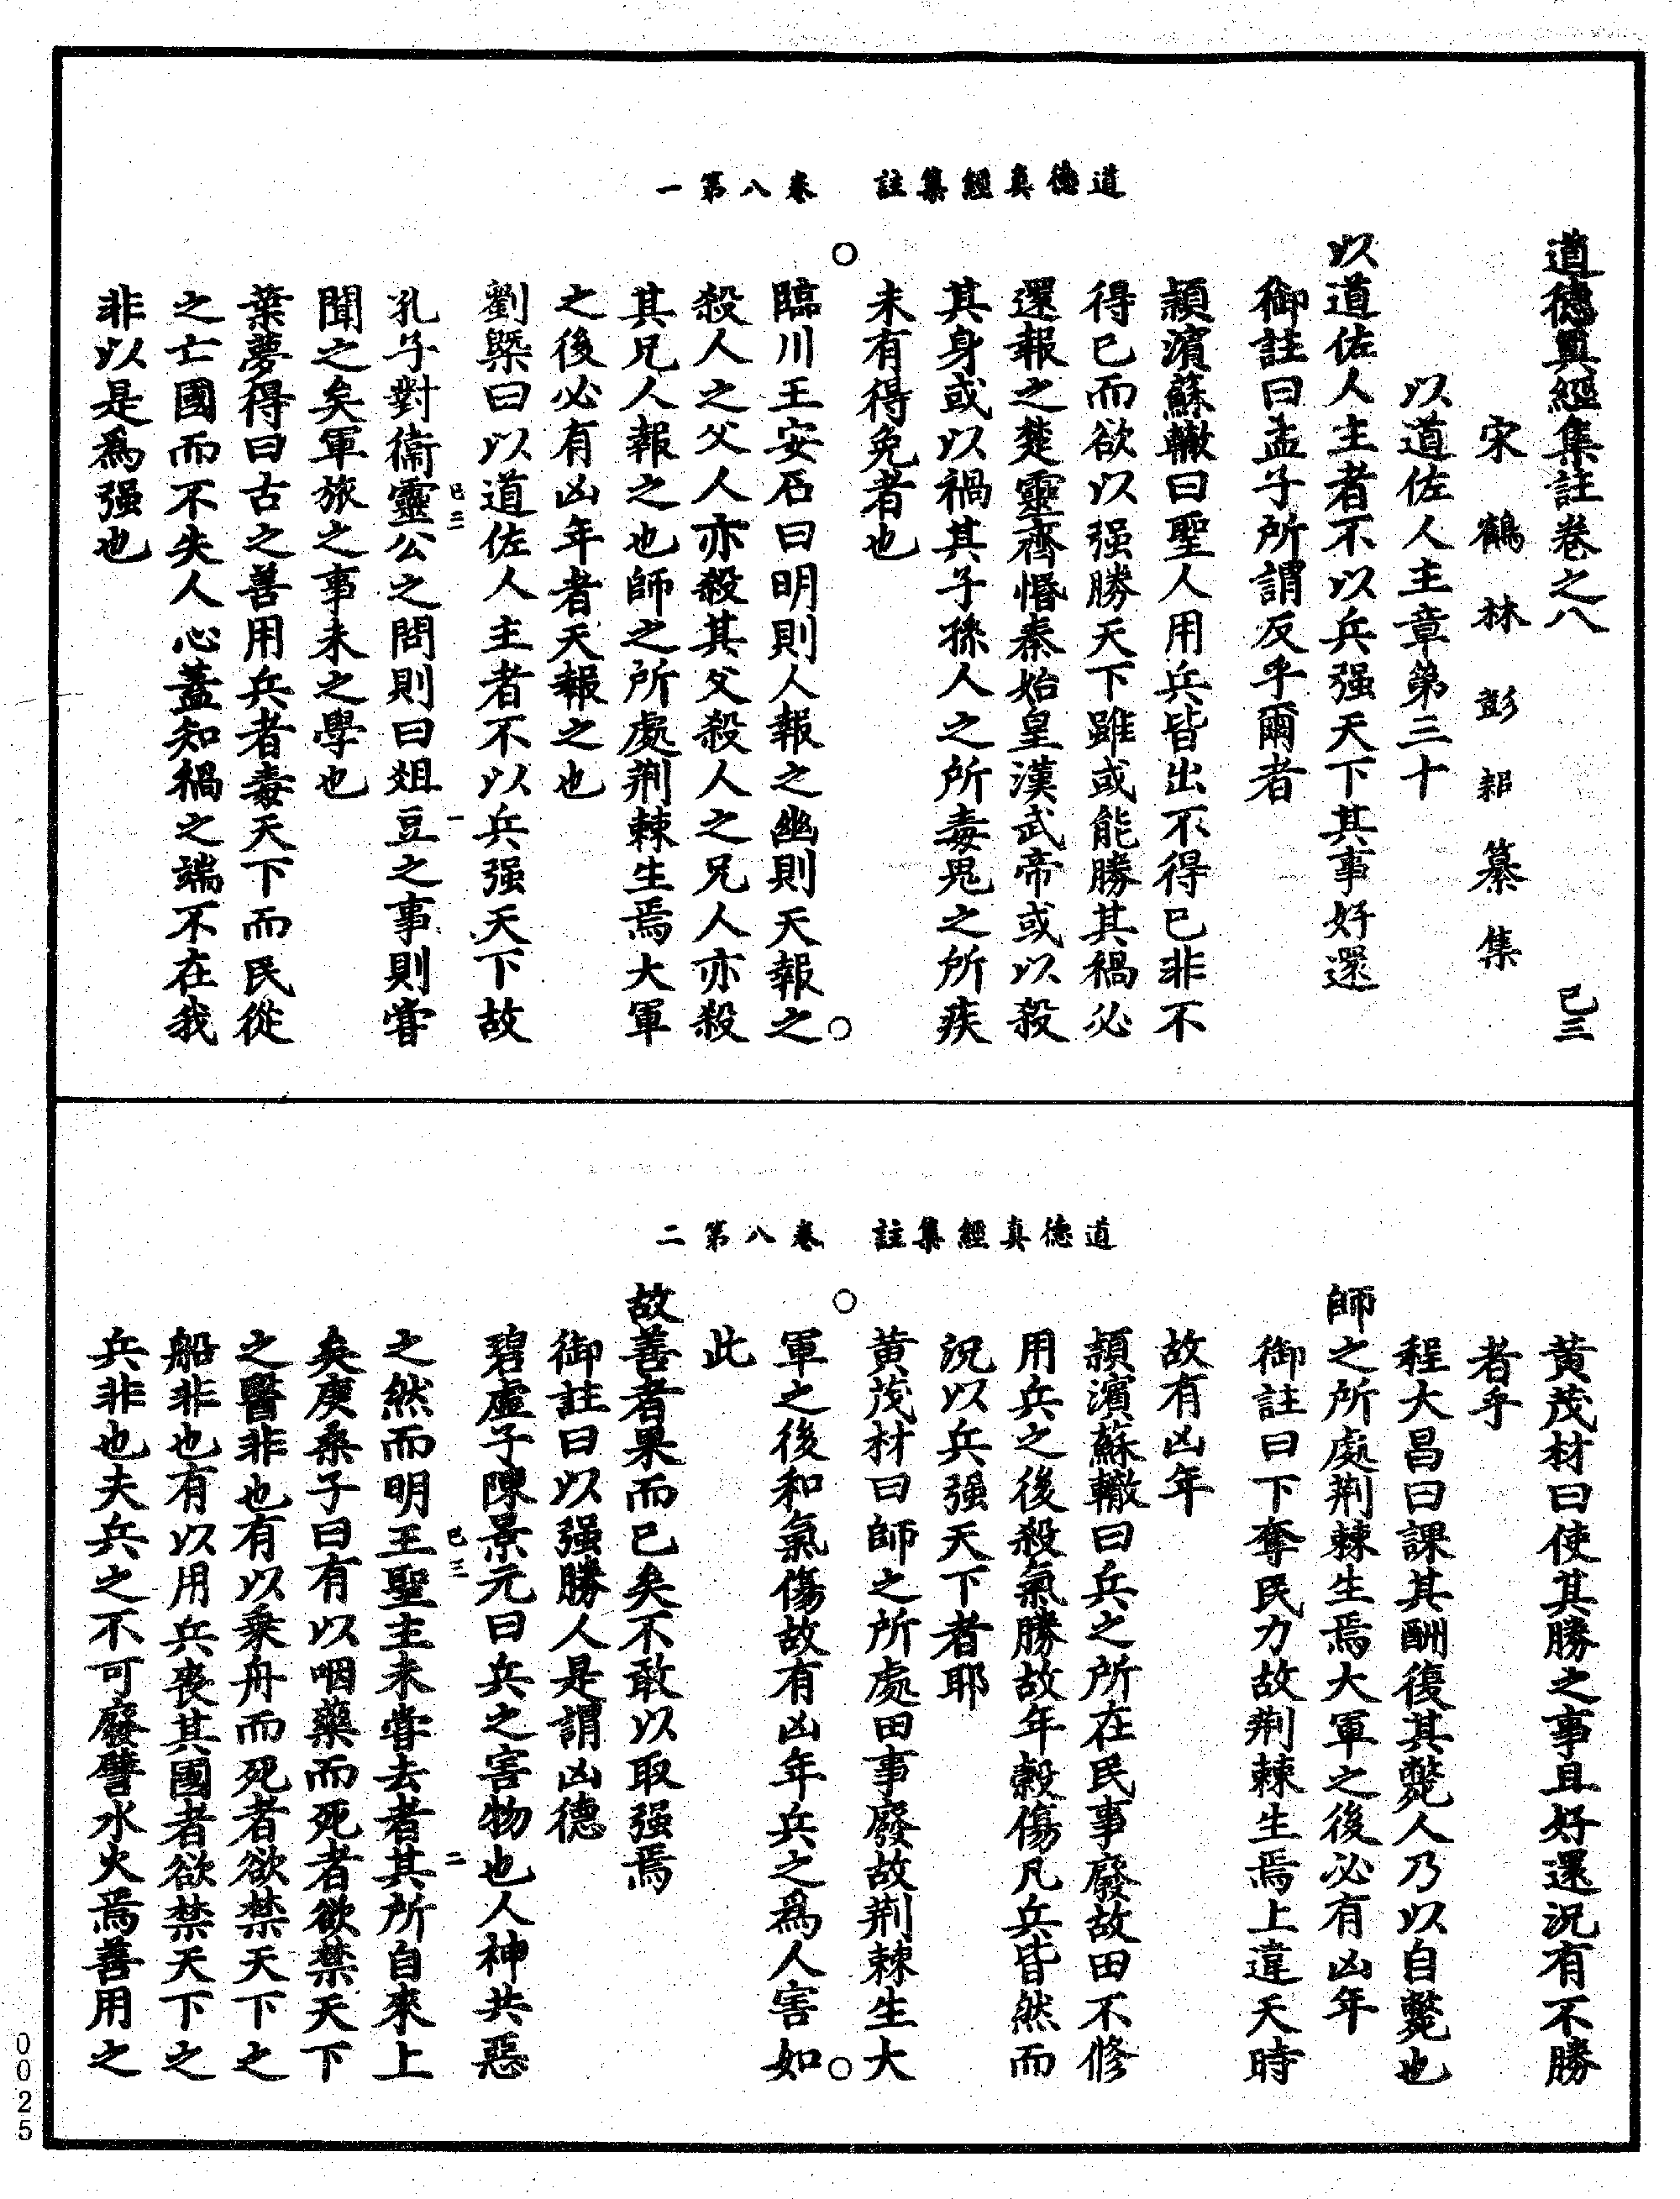 道德真經集註　卷八第一
道德眞經集註卷之八　己三
宋鶴林彭耜纂集
以道佐人主章第三十
以道佐人主者不以兵强天下其事好還
御註曰孟子所謂反乎爾者
潁濱蘇轍曰聖人用兵皆出不得已非不
得已而欲以强勝天下雖或能勝其禍必
還報之楚靈齊愍秦始皇漢武帝或以殺
其身或以禍其子孫人之所毒鬼之所疾
未有得免者也
臨川王安石曰明則人報之幽則天報之
殺人之父人亦殺其父殺人之兄人亦殺
其兄人報之也師之所處荆棘生焉大軍
之後必有凶年者天報之也
劉槩曰以道佐人主者不以兵强天下故
己三　一
孔子對衞靈公之問則曰俎豆之事則嘗
聞之矣軍旅之事未之學也
葉夢得曰古之善用兵者毒天下而民從
之亡國而不失人心蓋知禍之端不在我
非以是爲强也
道德真經集註　卷八第二
黃茂材曰使其勝之事且好還況有不勝
者乎
程大昌曰課其酬復其斃人乃以自斃也
師之所處荆棘生焉大軍之後必有凶年
御註曰下奪民力故荆棘生焉上違天時
故有凶年
潁濱蘇轍曰兵之所在民事廢故田不修
用兵之後殺氣勝故年穀傷凡兵皆然而
況以兵强天下者耶
黃茂材曰師之所處田事廢故荆棘生大
軍之後和氣傷故有凶年兵之爲人害如
此
故善者果而已矣不敢以取强焉
御註曰以强勝人是謂凶德
碧虛子陳景元曰兵之害物也人神共惡
己三　二
之然而明王聖主未嘗去者其所自來上
矣庚桑子曰有以咽藥而死者欲禁天下
之醫非也有以乘舟而死者欲禁天下之
船非也有以用兵喪其國者欲禁天下之
兵非也夫兵之不可廢譬水火焉善用之
0025